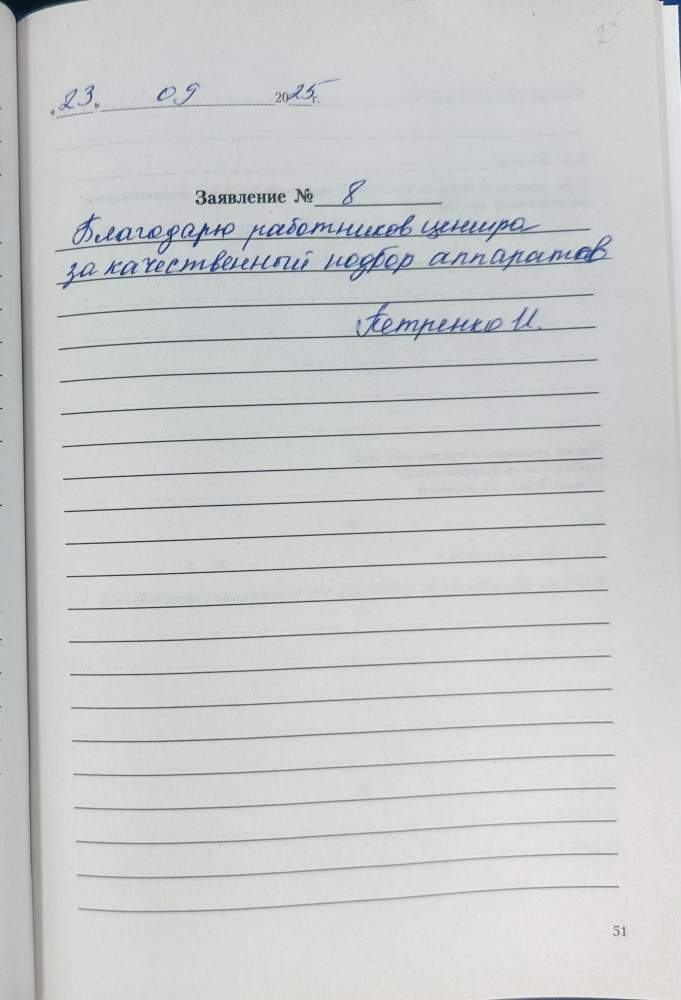 «23» 09 2025г.
Заявление № 8
Благодарю работников центра
за качественный подбор аппаратов
Петренко И.
51